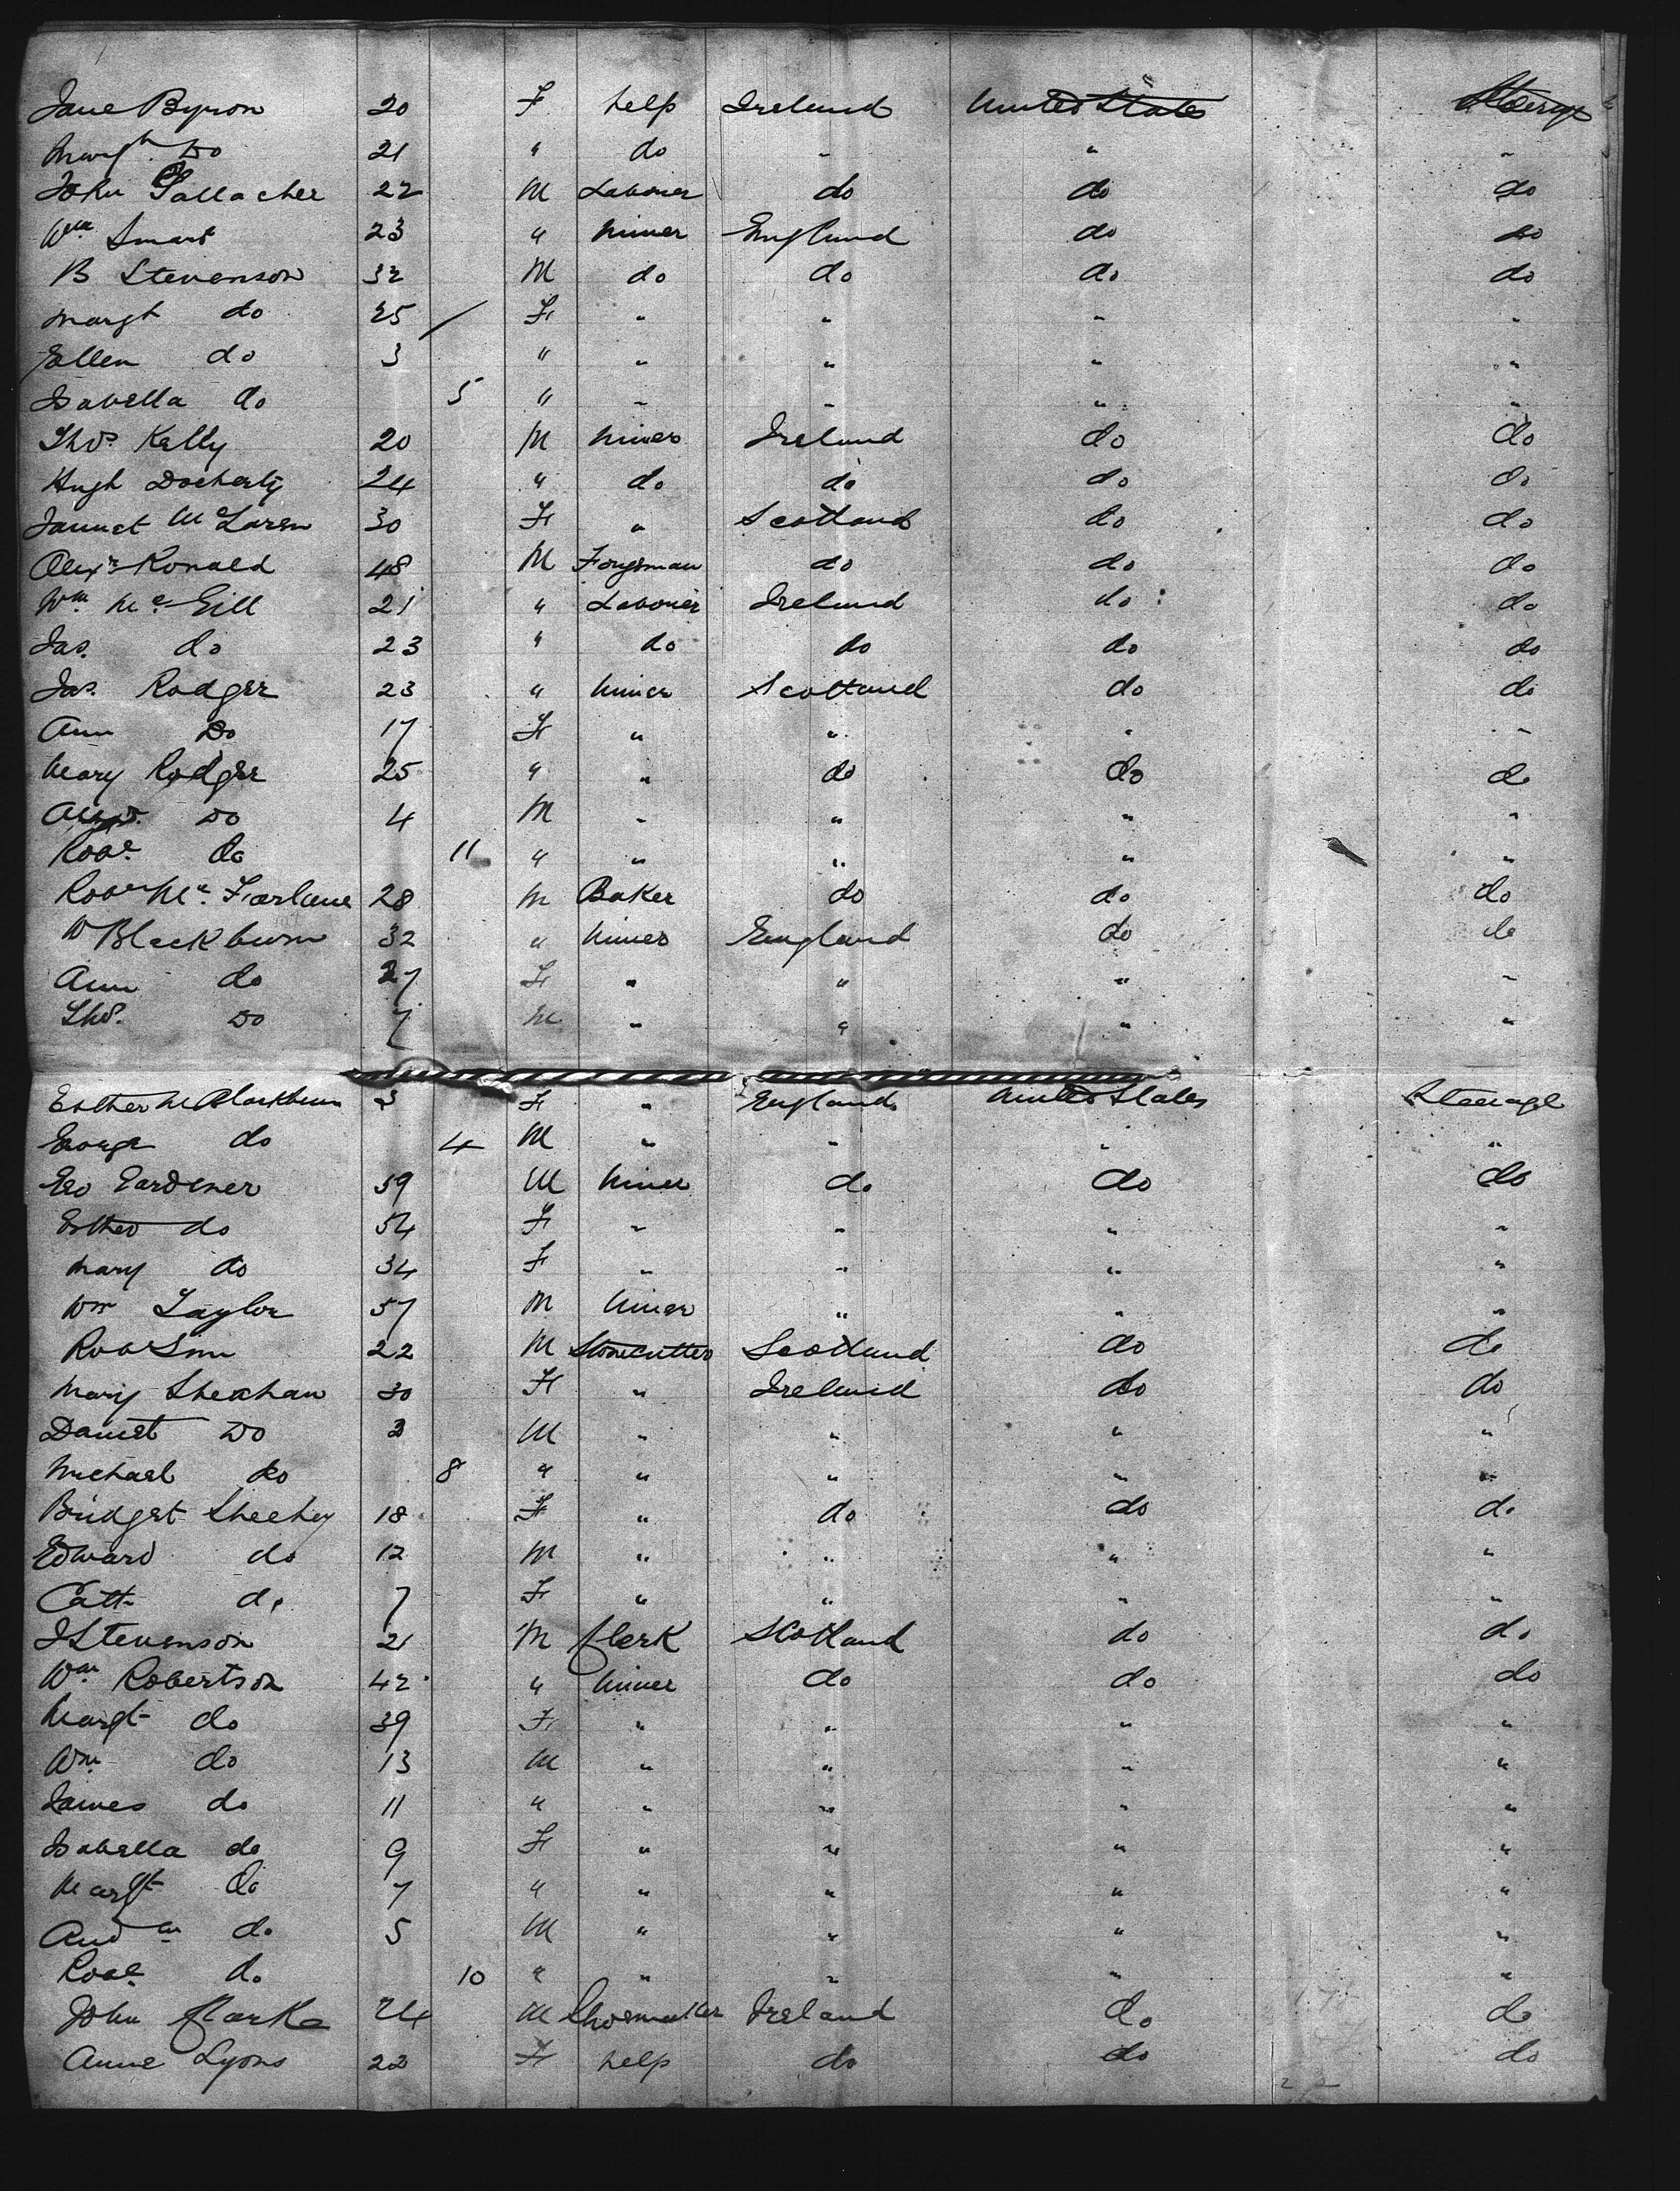 Jane Byron 20 F help Ireland United States Steerage
Margt Do 21 " do " " "
John Gallacher 22 M Laborer do do do
Wm Smart 23 " Miner England do do
B Stevenson 32 M do do do do
Margt do 25 F " " " "
Ellen do 3 " " " " "
Isabella do 5 " " " " "
Thos Kelly 20 M Miner Ireland do do
Hugh Docherty 24 " do do do do
Jannet McLaren 30 F " Scotland do do
Alexr Ronald 48 M Forgsman do do do
Wm McGill 21 " Laborer Ireland do do
Jas. do 23 " do do do do
Jas. Rodger 23 " Miner Scotland do do
Ann Do 17 F " " " "
Mary Rodger 25 " " do do do
Alexr. Do 4 M " " " "
Robt. do 11 " " " " "
Robt Mc. Farlane 28 M Baker do do do
W Blackburn 32 " Miner England do do
Ann do 27 F " " " "
Thos. Do 7 M " " " "
Esther M Blackburn 3 F " England United States Steerage
George do 4 M " " " "
Geo Gardener 59 M Miner do do do
Esther do 54 F " " " "
Mary do 34 F " " " "
Wm Taylor 57 M Miner " " "
Robt Sim 22 M Stonecutter Scotland do do
Mary Sheehan 30 F " Ireland do do
Daniel Do 3 M " " " "
Michael do 8 " " " " "
Bridget Sheehy 18 F " do do do
Edward do 12 M " " " "
Cath do 7 F " " " "
J Stevenson 21 M Clerk Scotland do do
Wm Robertson 42 " Miner do do do
Margt do 39 F " " " "
Wm do 13 M " " " "
James do 11 " " " " "
Isabella do 9 F " " " "
Margt do 7 " " " " "
Andw do 5 M " " " "
Robt. do 10 " " " " "
John Clarke 24 M Shoemaker Ireland do do
Anne Lyons 22 F help do do do